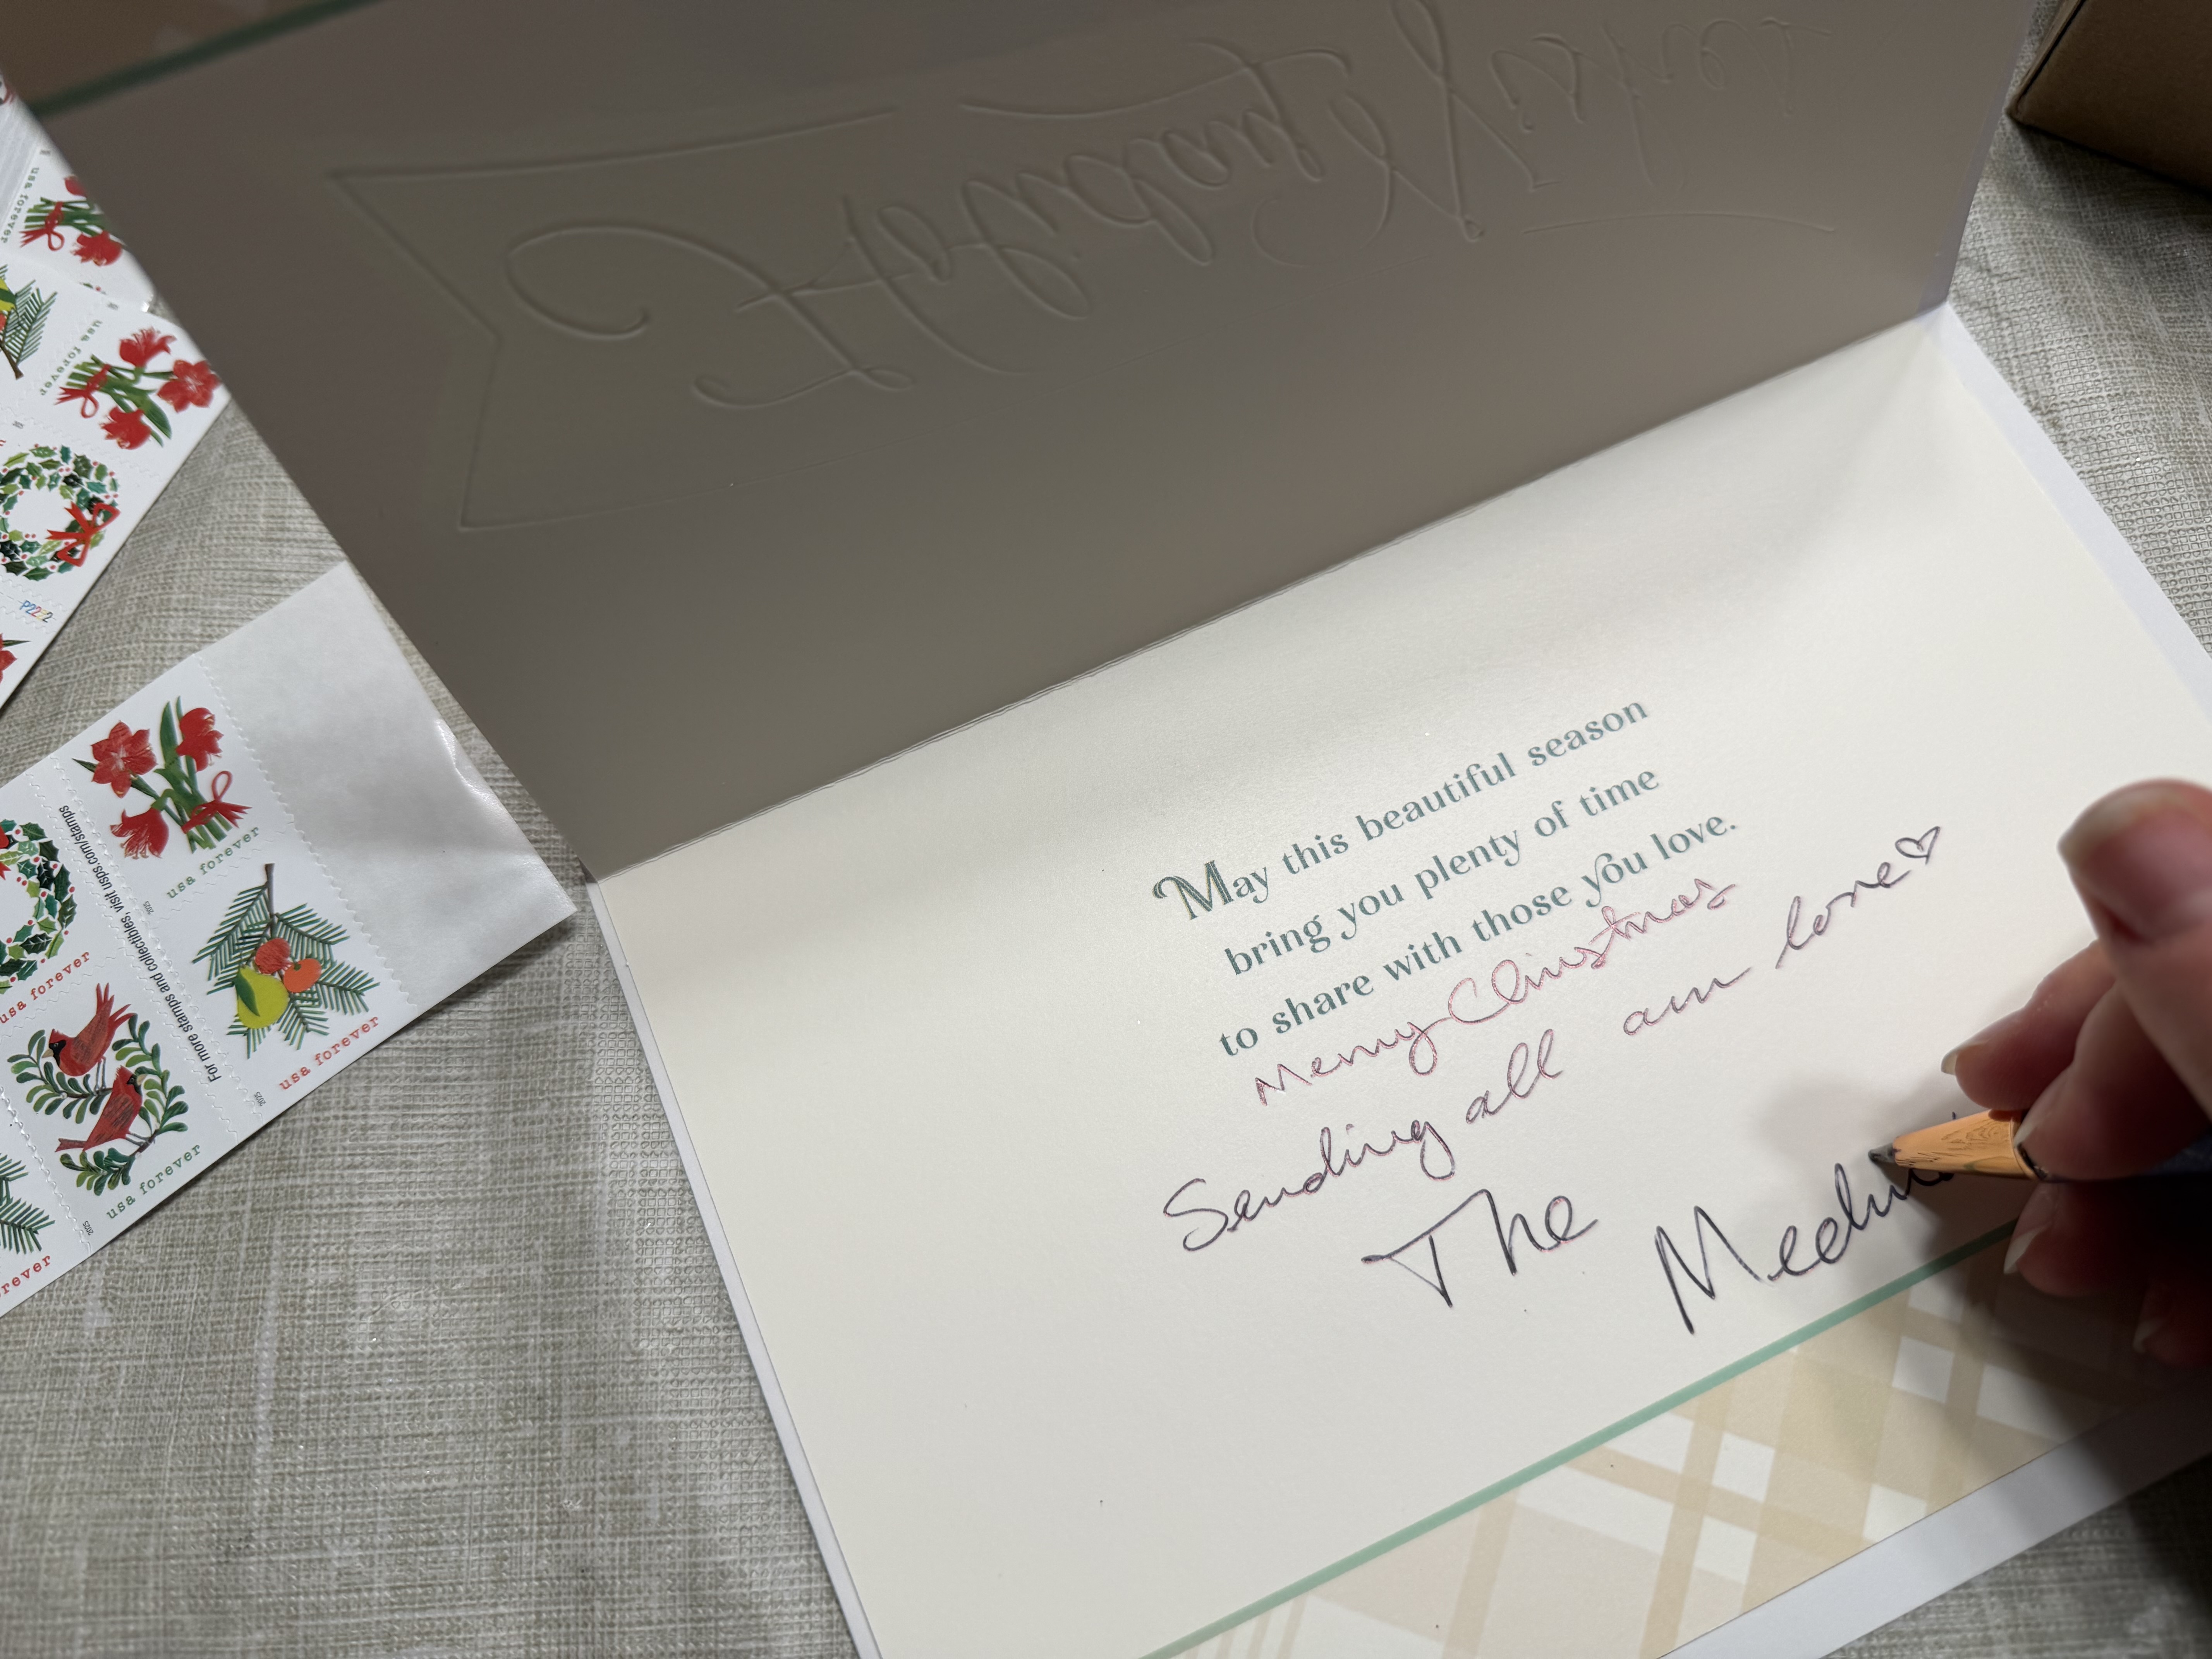 Holiday Wishes
May this beautiful season
bring you plenty of time
to share with those you love.
Merry Christmas
Sending all our love♡
The
usa forever
usa forever
P2222
usa forever
2025
usa forever
2025
For more stamps and collectibles, visit usps.com/stamps
usa forever
usa forever
2025